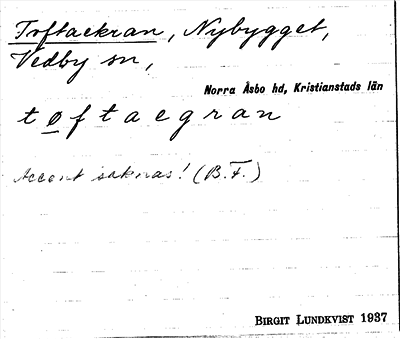 Toftaekran, Nybygget,
Vedby sn,
Norra Åsbo hd, Kristianstads län
tøftaegran
Accent saknas! (B.F.)
BIRGIT LUNDKVIST 1937